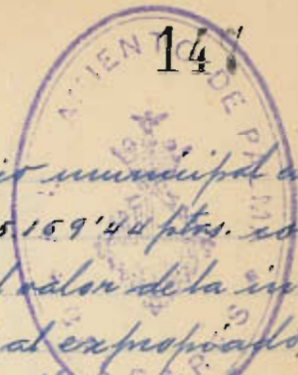 147
AYUNTAMIENTO DE PALMA
io municipal a
5.159'44 ptas. co
l valor de la in
al expropiado,